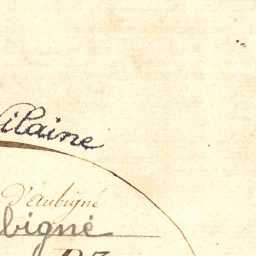 ilaine
D'Aubigné
bigné